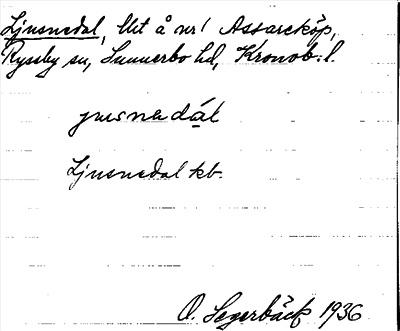 Ljusnedal, lht å nr 1 Assareköp,
Ryssby sn, Sunnerbo hd, Kronob. l.
jusnedàl
Ljusnedal kb.
O. Segerbäck 1936